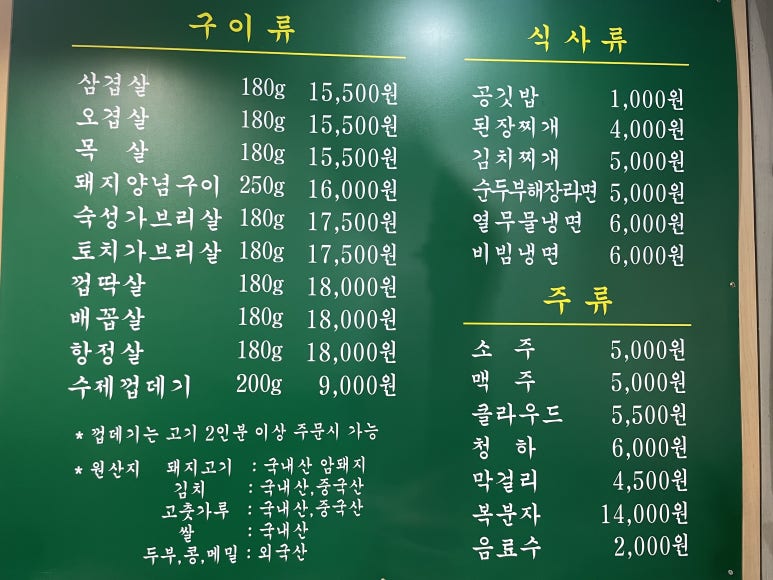 구이류
삼겹살 180g 15,500원
오겹살 180g 15,500원
목 살 180g 15,500원
돼지양념구이 250g 16,000원
숙성가브리살 180g 17,500원
토치가브리살 180g 17,500원
껍딱살 180g 18,000원
배꼽살 180g 18,000원
항정살 180g 18,000원
수제껍데기 200g 9,000원
* 껍데기는 고기 2인분 이상 주문시 가능
* 원산지 돼지고기 : 국내산 암돼지
김치 : 국내산,중국산
고춧가루 : 국내산,중국산
쌀 : 국내산
두부,콩,메밀 : 외국산
식사류
공깃밥 1,000원
된장찌개 4,000원
김치찌개 5,000원
순두부해장라면 5,000원
열무물냉면 6,000원
비빔냉면 6,000원
주류
소 주 5,000원
맥 주 5,000원
클라우드 5,500원
청 하 6,000원
막걸리 4,500원
복분자 14,000원
음료수 2,000원